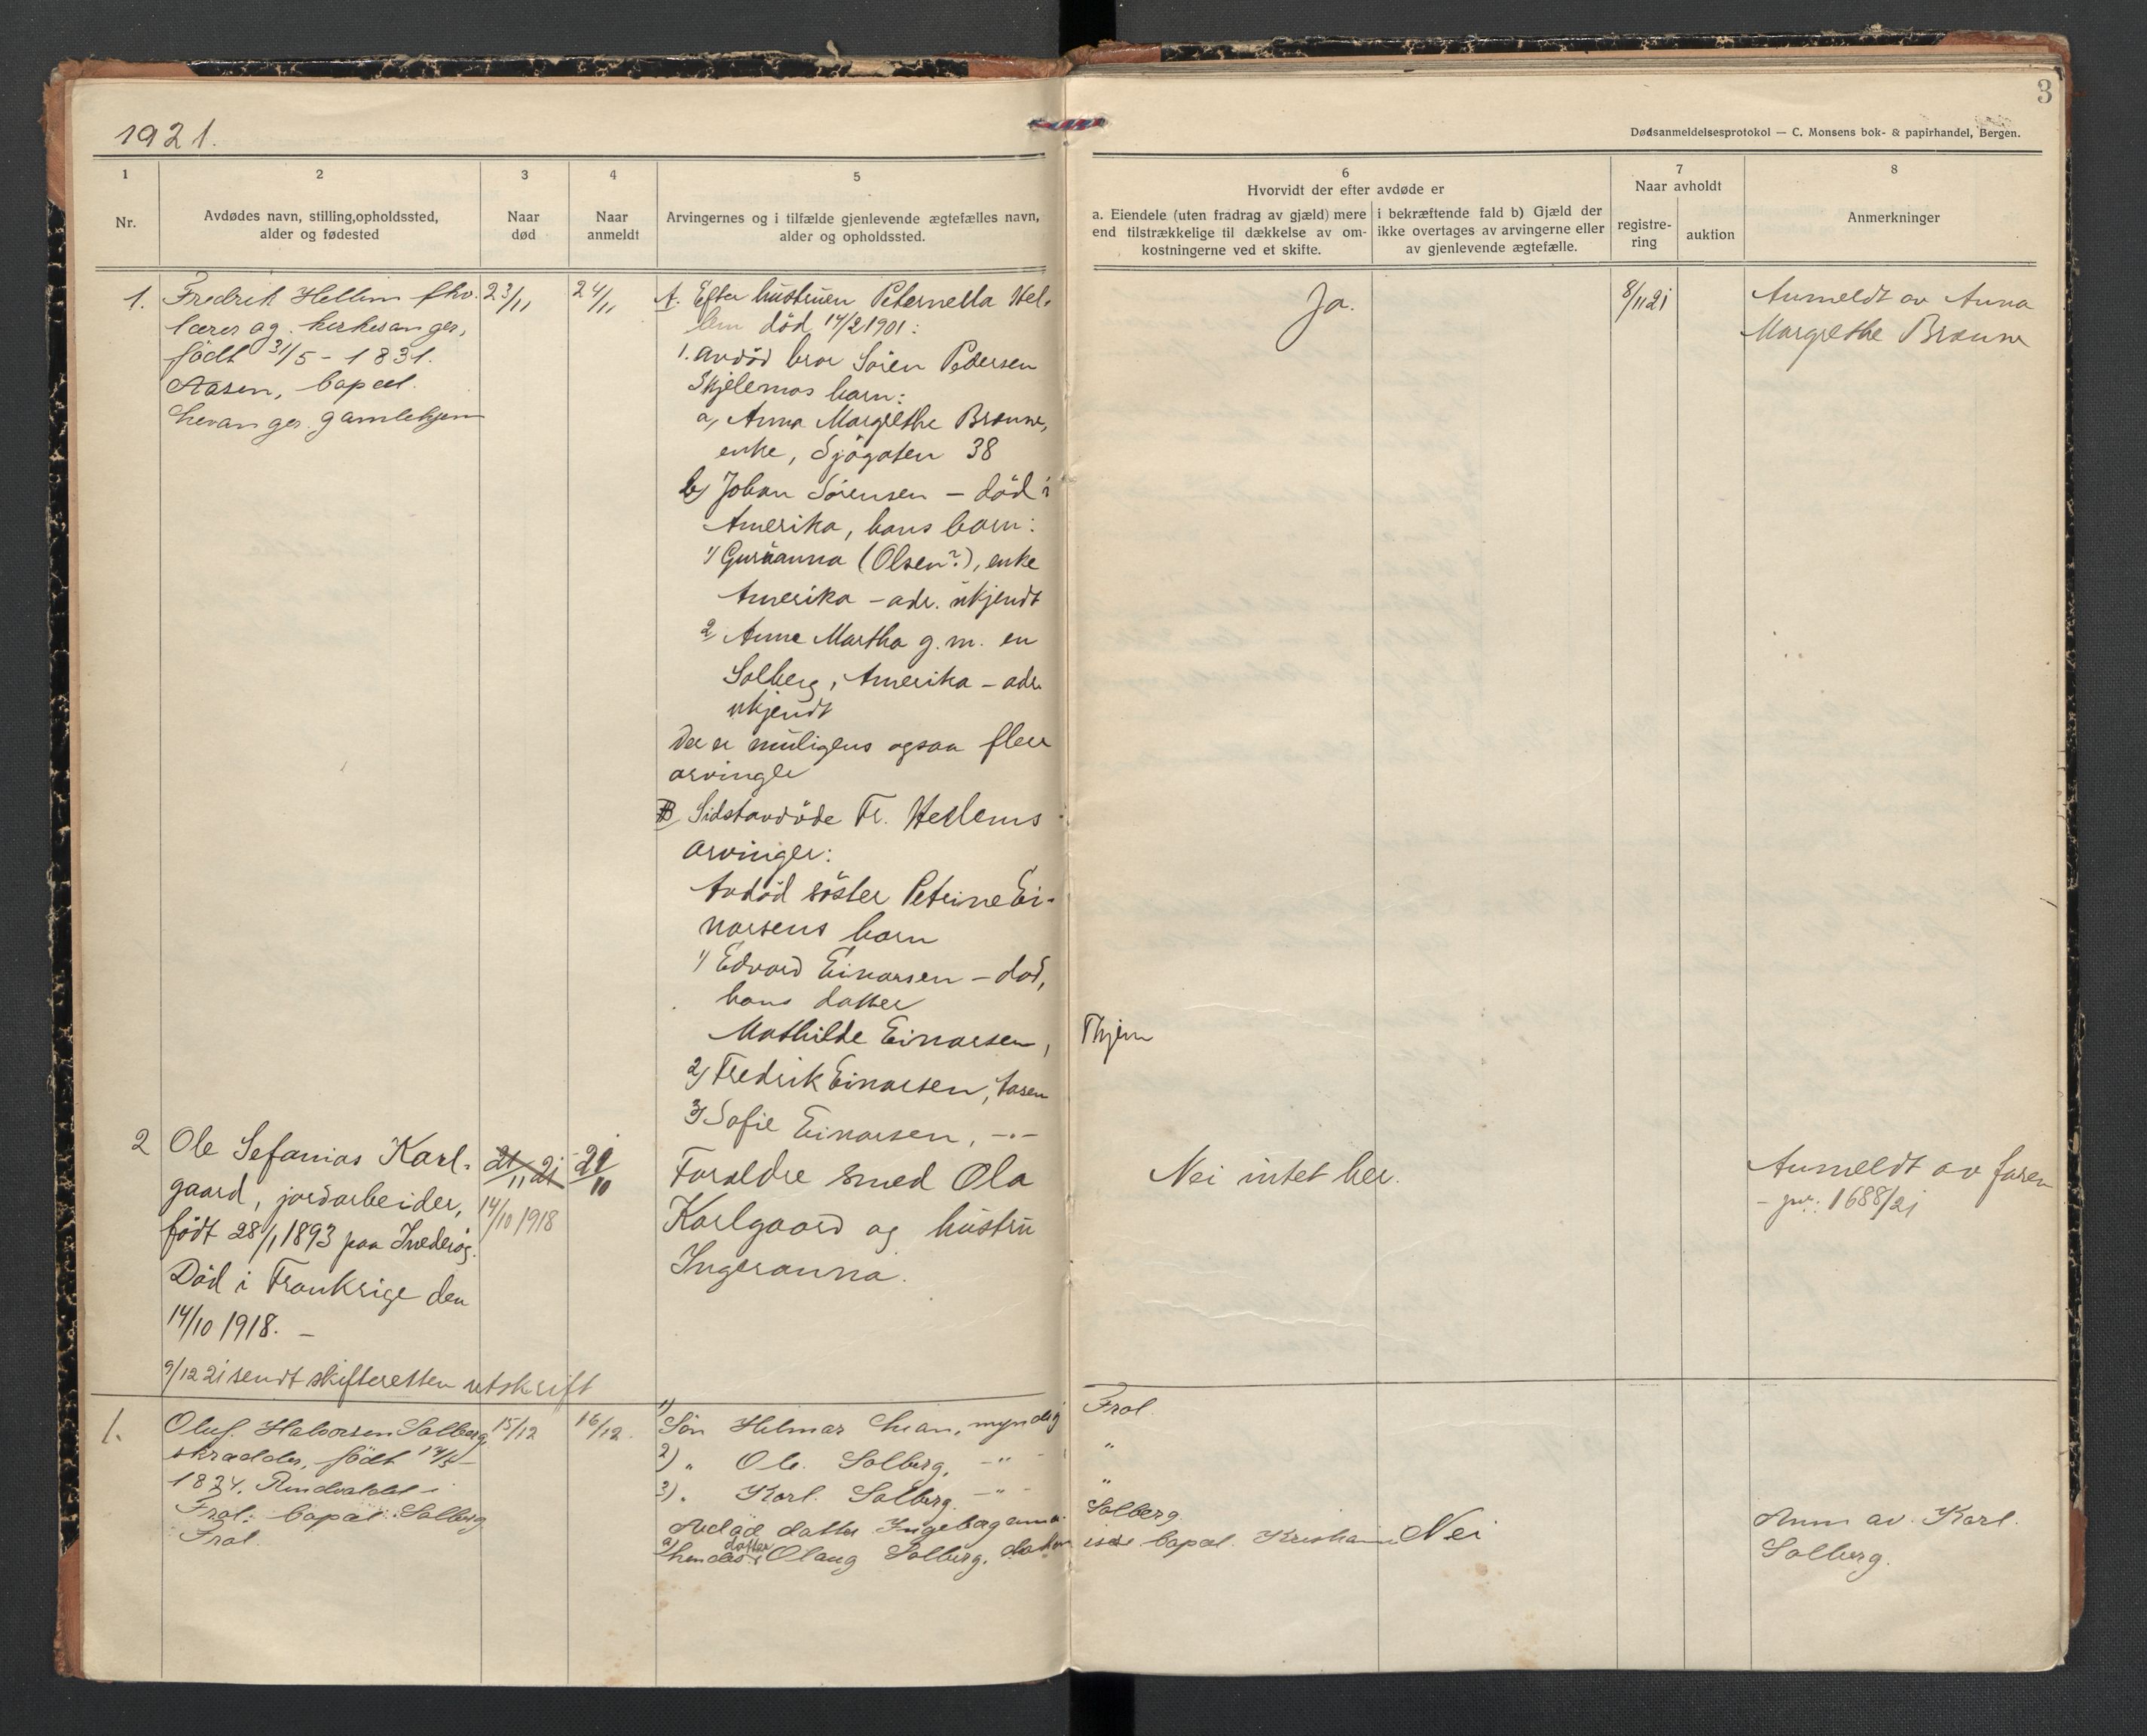 1921.
3
Dødsanmeldelsesprotokol — C. Monsens bok- & papirhandel, Bergen.
1
2
3
4
5
6
7
8
Nr.
Avdødes navn, stilling, opholdssted,
alder og fødested
Naar
død
Naar
anmeldt
Arvingernes og i tilfælde gjenlevende ægtefælles navn,
alder og opholdssted.
Hvorvidt der efter avdøde er
a. Eiendele (uten fradrag av gjæld) mere
end tilstrækkelige til dækkelse av om-
kostningerne ved et skifte.
i bekræftende fald b) Gjæld der
ikke overtages av arvingerne eller
av gjenlevende ægtefælle.
Naar avholdt
registre-
ring
auktion
Anmerkninger
1.
Fredrik Hellem fhv.
lærer og kirkesanger,
født 31/5 - 1831.
Aasen, bopæl
Levanger gamlehjem
23/11
24/11
A. Efter hustruen Peternella Hel-
lem död 14/2 1901:
1. avdöd bror Sören Pedersen
Skjelemos barn:
a, Anna Margrethe Broune,
enke, Sjögaten 38
b) Johan Sörensen — död i
Amerika, hans barn:
1) Guruanna (Olsen?), enke
Amerika — adr. ukjendt
2 Anne Martha g. m. en
Solberg, Amerika — adr.
ukjendt
Der er muligens ogsaa flere
arvinger
B Sidstavdöde Fr. Hellems
arvinger:
Avdöd söster Petrine Ei-
narsens barn
1) Edvard Einarsen — död,
hans datter
Mathilde Einarsen, Thjem
2) Fredrik Einarsen, Aasen
3) Sofie Einarsen, -"-
Ja.
8/11 21
Anmeldt av Anna
Margrethe Broune
2
Ole Sefanias Karl-
gaard, jordarbeider,
født 28/1 1893 paa Inderøy.
Död i Frankrige den
14/10 1918. —
9/12 21 sendt skifteretten utskrift
21/11 21
14/10 1918
21/10
Foreldre smed Ola
Karlgaard og hustru
Ingeranna.
Nei intet her.
Anmeldt av faren
- jnr. 1688/21
1.
Oluf Halvorsen Solberg,
skrædder, født 14/5 -
1834. Rindvaldet i
Frol. bopæl: Solberg
Frol.
15/12
16/12.
1) Sön Helmar Lian, myndig Frol.
2) " Ole Solberg, -"- "
3) " Karl Solberg. -"- "
Avdöd datter Ingeborganna Solberg
a) hendes datter Olaug Solberg, bopæl
Nei
Anm av. Karl
Solberg.